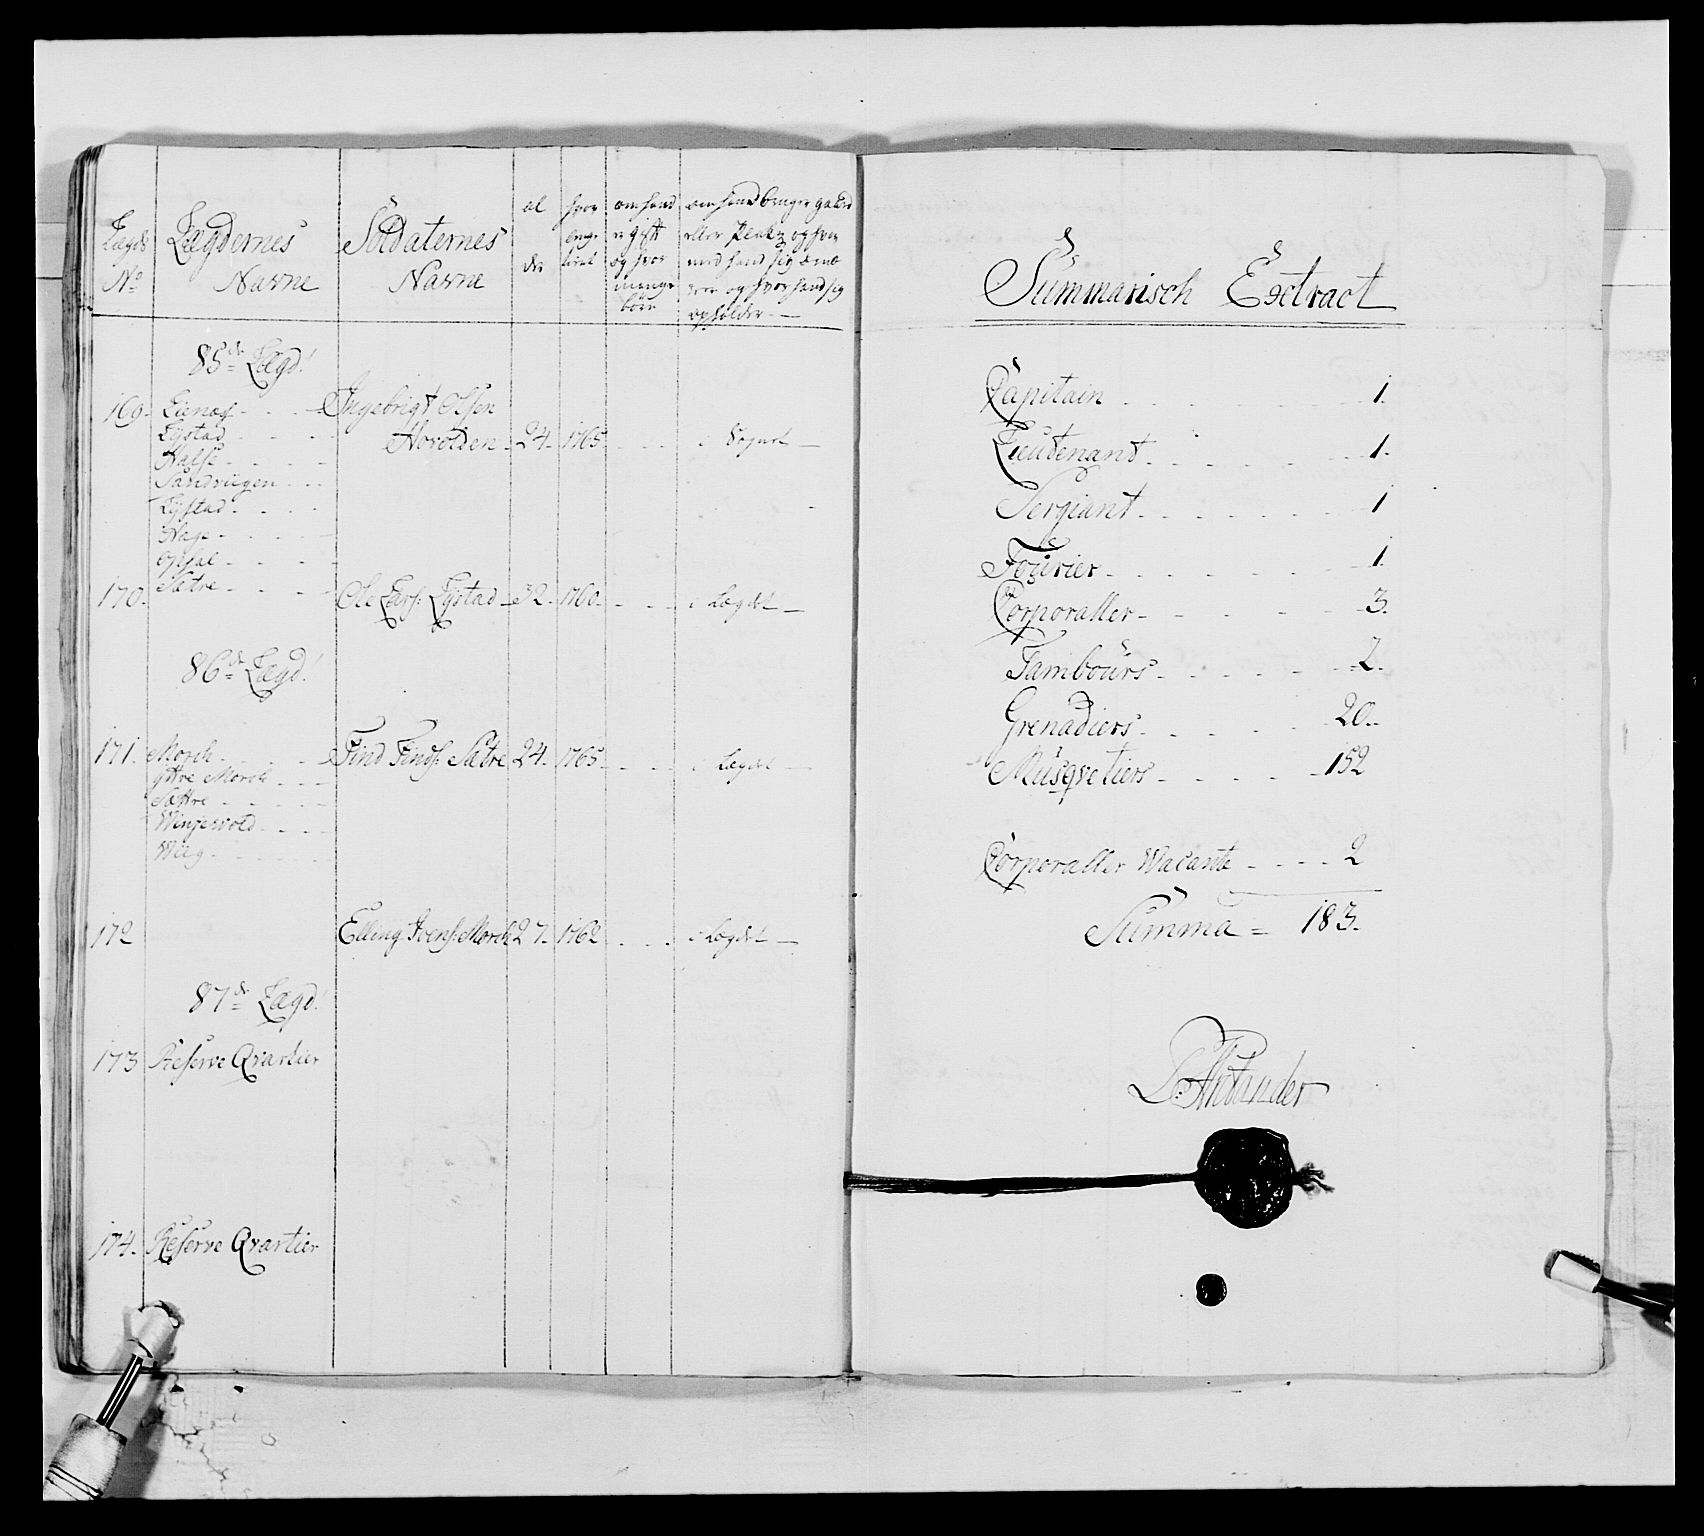 Lægds No
Lægdernes Navne
Soldaternes Navne
al der
hvor lenge tient
om hand er gift og hvor mange børn
om hand bruger gaard eller Pladtz og hvor med hand sig ernærer og hvor hand sig opholder
85de Lægd.
169. Ingebrigt Olsen
Lystad Horolden 24. 1765 i Sognet
Halse
Sandviigen
Lystad
Hage
Opsal
Sætre
170. Ole Lars: Lystad 32 1760 i Lægdet
86de Lægd.
171. Morch Find Finds: Sætre 24. 1765 i Lægdet
ytre Morch
Sættre
Winjevold
Wiig
172 Elling Ivers: Morch 27. 1762 i Lægdet
87de Lægd.
173 Reserve Qvartier
174. Reserve Qvartier
Summarisch Extract
Capitain 1.
Lieutenant 1.
Sergiant 1
Fourier 1.
Corporaller 3.
Tambours 2.
Grenadiers 20.
Musqvetiers 152
Corporaller Wacante 2
Summa = 183.